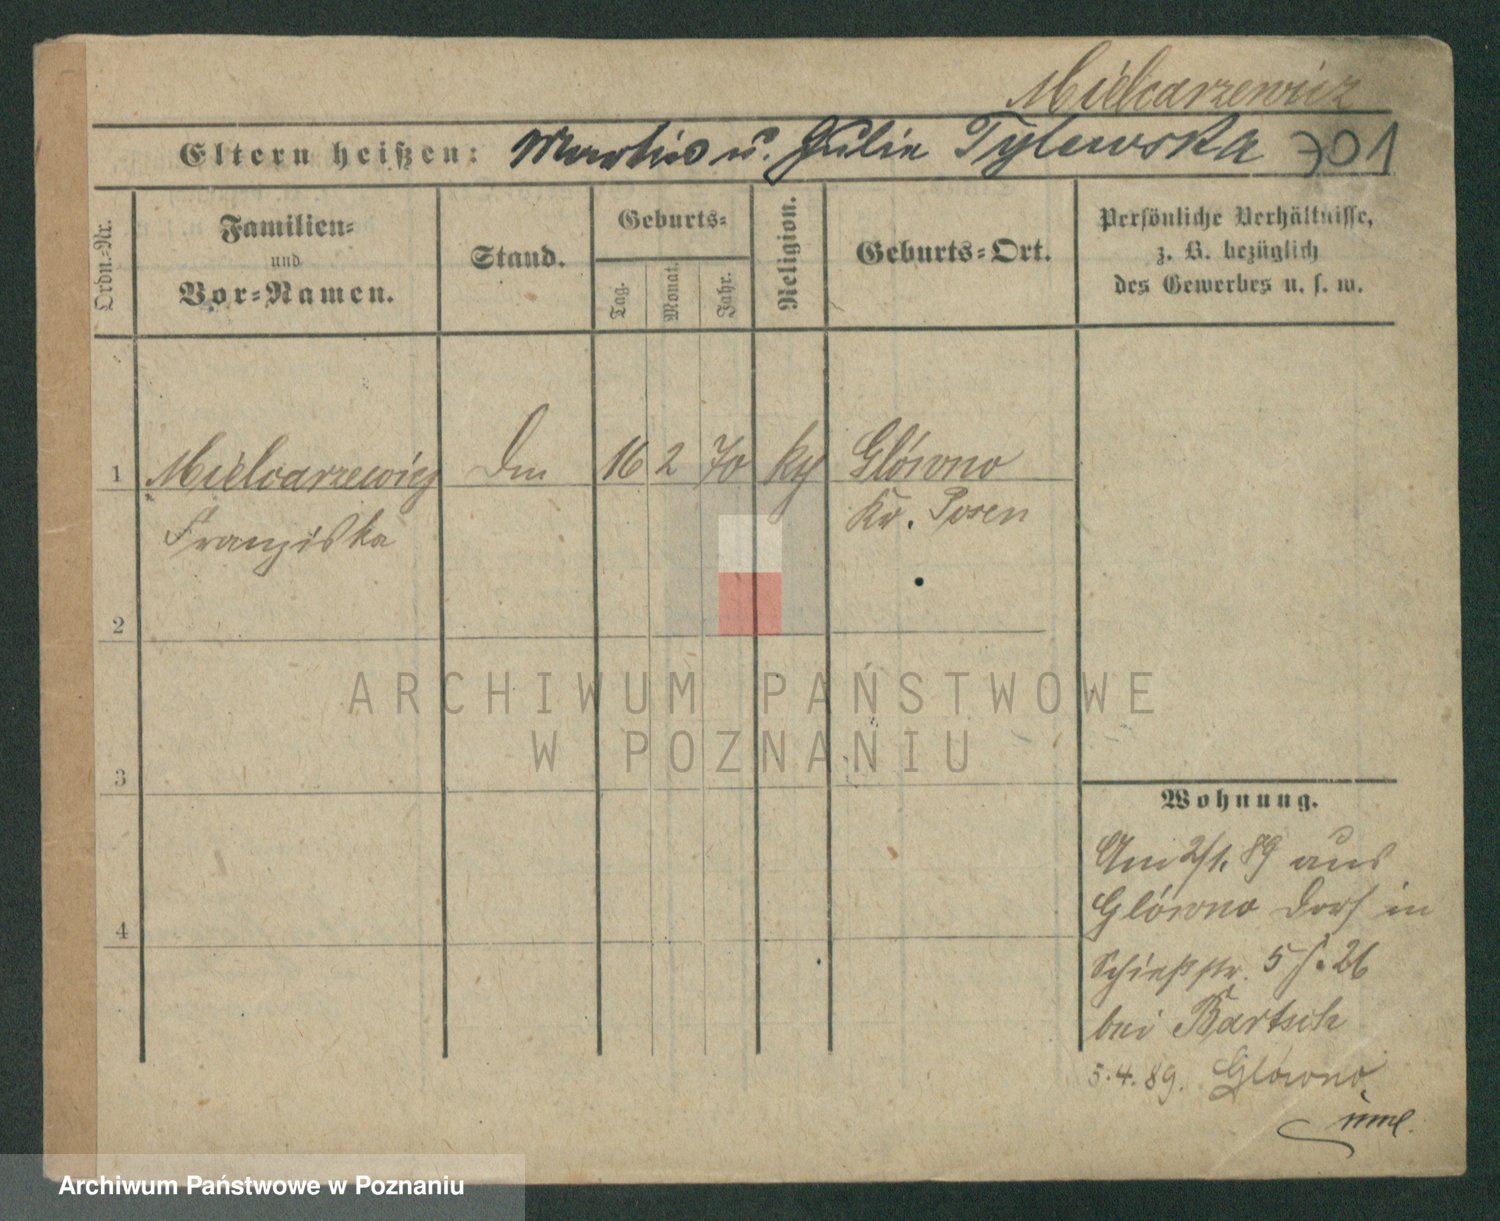 Mielcarzewicz
Eltern heißen: Martin u. Julie Tylewska 701
Ordn.-Nr.
Familien-
und
Vor-Namen.
Stand.
Geburts-
Tag.
Monat.
Jahr.
Religion.
Geburts-Ort.
Persönliche Verhältnisse,
z. B. bezüglich
des Gewerbes u. s. w.
1 Mielcarzewicz 16 2 70 Główno
Franziska Kr. Posen
2
3
4
Wohnung.
Am 2/1. 89 aus
Główno Dorf in
Schießstr. 5 26
bei Bartsch
5.4.89. Główno
ARCHIWUM PAŃSTWOWE
W POZNANIU
Archiwum Państwowe w Poznaniu